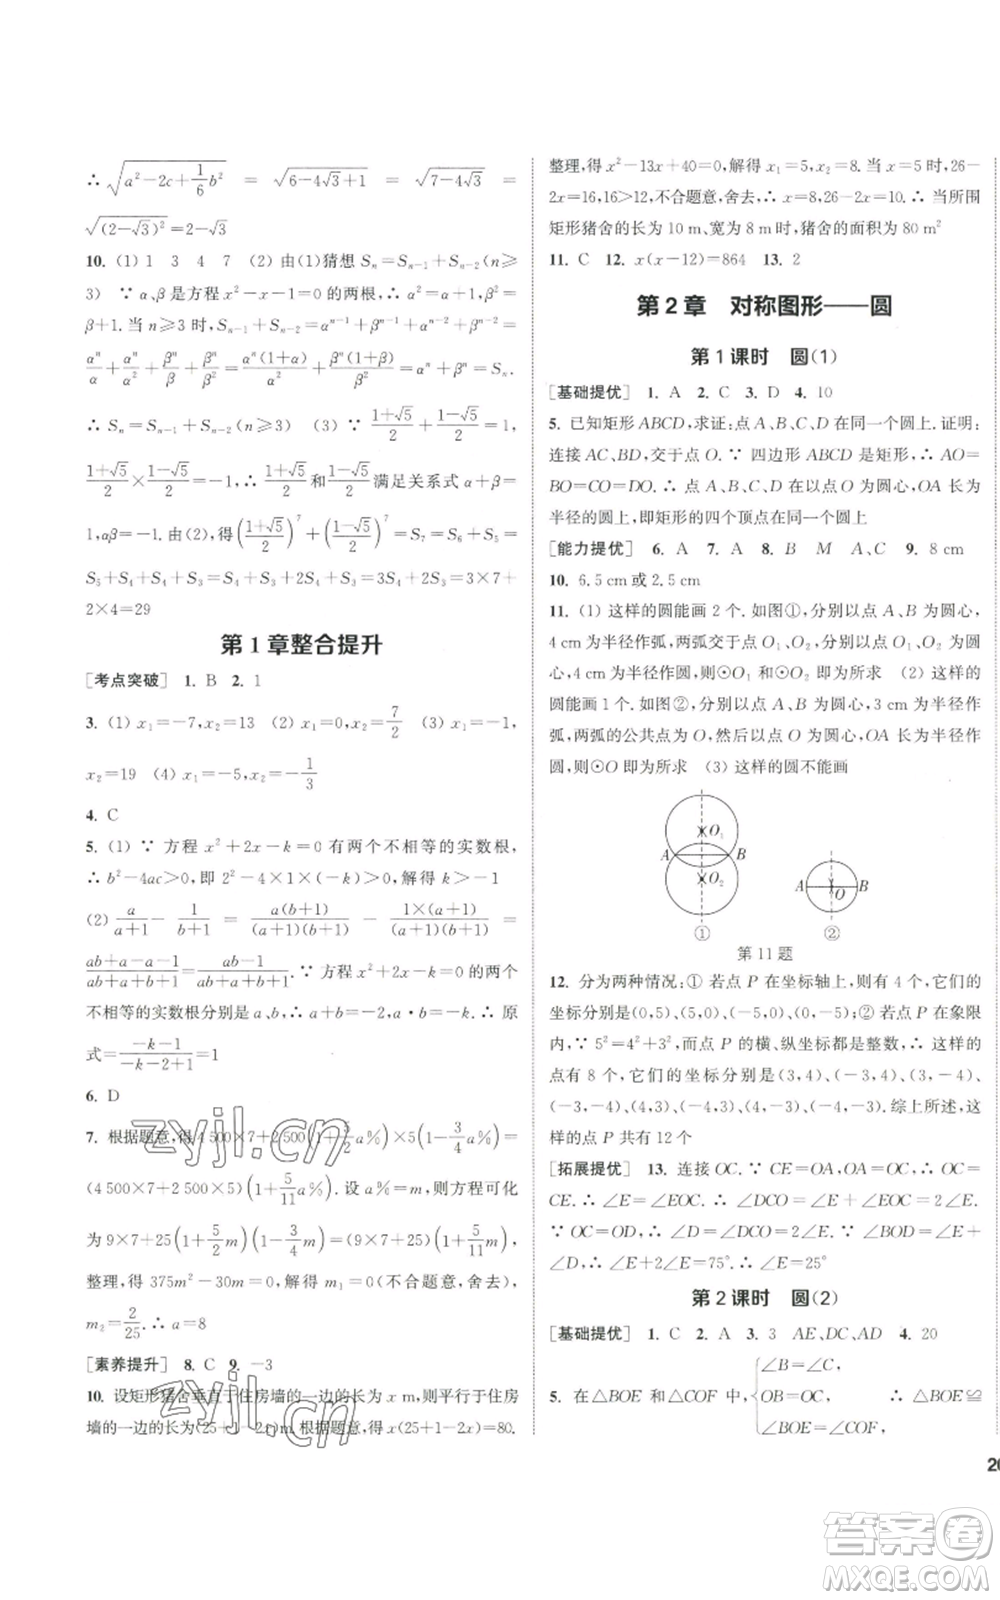 ∴ √(a²-2c+1/6 b²) = √(6-4√3+1) = √(7-4√3) =
√((2-√3)²)=2-√3
10. (1) 1 3 4 7 (2) 由(1)猜想 Sₙ=Sₙ₋₁+Sₙ₋₂(n≥
3) ∵ α、β是方程 x²-x-1=0 的两根,∴ α²=α+1,β²=
β+1. 当 n≥3 时,Sₙ₋₁+Sₙ₋₂=αⁿ⁻¹+βⁿ⁻¹+αⁿ⁻²+βⁿ⁻²=
αⁿ/α+αⁿ/α²+βⁿ/β+βⁿ/β²=αⁿ(1+α)/α²+βⁿ(1+β)/β²=αⁿ+βⁿ=Sₙ.
∴ Sₙ=Sₙ₋₁+Sₙ₋₂ (3) ∵ (1+√5)/2+(1-√5)/2=1,
(1+√5)/2×(1-√5)/2=-1,∴ (1+√5)/2和(1-√5)/2满足关系式 α+β=
1,αβ=-1. 由(2),得((1+√5)/2)⁷+((1-√5)/2)⁷=S₇=S₆+S₅=
S₅+S₄+S₄+S₃=S₄+S₃+S₄+S₄+S₃=3S₄+2S₃=3×7+
2×4=29
第1章整合提升
[考点突破] 1. B 2. 1
3. (1) x₁=-7,x₂=13 (2) x₁=0,x₂=7/2 (3) x₁=-1,
x₂=19 (4) x₁=-5,x₂=-1/3
4. C
5. (1) ∵ 方程 x²+2x-k=0 有两个不相等的实数根,
∴ b²-4ac>0,即 2²-4×1×(-k)>0,解得 k>-1
(2) a/(a+1)-1/(b+1)=a(b+1)/((a+1)(b+1))-1×(a+1)/((a+1)(b+1))=
(ab+a-a-1)/(ab+a+b+1)=(ab-1)/(ab+a+b+1). ∵ 方程 x²+2x-k=0 的两个
不相等的实数根分别是 a、b,∴ a+b=-2,a·b=-k. ∴ 原
式=(-k-1)/(-k-2+1)=1
6. D
7. 根据题意,得4 500×7+2 500(1+5/2 a%)×5(1-3/4 a%)=
(4 500×7+2 500×5)(1+5/11 a%). 设 a%=m,则方程可化
为 9×7+25(1+5/2 m)(1-3/4 m)=(9×7+25)(1+5/11 m),
整理,得 375m²-30m=0,解得 m₁=0(不合题意,舍去),
m₂=2/25. ∴ a=8
[素养提升] 8. C 9. -3
10. 设矩形猪舍垂直于住房墙的一边的长为 x m,则平行于住房
墙的一边的长为(25+1-2x)m. 根据题意,得 x(25+1-2x)=80.
整理,得 x²-13x+40=0,解得 x₁=5,x₂=8. 当 x=5 时,26-
2x=16,16>12,不合题意,舍去,∴ x=8,26-2x=10. ∴ 当所围
矩形猪舍的长为 10 m、宽为 8 m 时,猪舍的面积为 80 m²
11. C 12. x(x-12)=864 13. 2
第2章 对称图形——圆
第1课时 圆(1)
[基础提优] 1. A 2. C 3. D 4. 10
5. 已知矩形 ABCD,求证:点 A、B、C、D 在同一个圆上. 证明:
连接 AC、BD,交于点 O. ∵ 四边形 ABCD 是矩形,∴ AO=
BO=CO=DO. ∴ 点 A、B、C、D 在以点 O 为圆心,OA 长为
半径的圆上,即矩形的四个顶点在同一个圆上
[能力提优] 6. A 7. A 8. B M A、C 9. 8 cm
10. 6.5 cm 或 2.5 cm
11. (1) 这样的圆能画 2 个. 如图①,分别以点 A、B 为圆心,
4 cm 为半径作弧,两弧交于点 O₁、O₂,分别以点 O₁、O₂ 为圆心,
4 cm 为半径作圆,则⊙O₁ 和⊙O₂ 即为所求 (2) 这样的圆
能画 1 个. 如图②,分别以点 A、B 为圆心,3 cm 为半径作弧,
两弧的公共点为 O,然后以点 O 为圆心,OA 长为半径作
圆,则⊙O 即为所求 (3) 这样的圆不能画
O₁
A B
O₂
A O B
① ②
第11题
12. 分为两种情况:① 若点 P 在坐标轴上,则有 4 个,它们的
坐标分别是(0,5)、(5,0)、(-5,0)、(0,-5);② 若点 P 在象限
内,∵ 5²=4²+3²,而点 P 的横、纵坐标都是整数,∴ 这样的
点有 8 个,它们的坐标分别是(3,4)、(3,-4)、(-3,4)、
(-3,-4)、(4,3)、(-4,3)、(4,-3)、(-4,-3). 综上所述,这
样的点 P 共有 12 个
[拓展提优] 13. 连接 OC. ∵ CE=OA,OA=OC,∴ OC=
CE. ∴ ∠E=∠EOC. ∴ ∠DCO=∠E+∠EOC=2∠E.
∵ OC=OD,∴ ∠D=∠DCO=2∠E. ∵ ∠BOD=∠E+
∠D,∴ ∠E+2∠E=75°. ∴ ∠E=25°
第2课时 圆(2)
[基础提优] 1. C 2. A 3. 3 AE、DC、AD 4. 20
5. 在△BOE 和△COF 中,{∠B=∠C, OB=OC, ∠BOE=∠COF, ∴ △BOE≌
20
zyjl.cn
zyjl.cn
答案卷
MXQE.COM